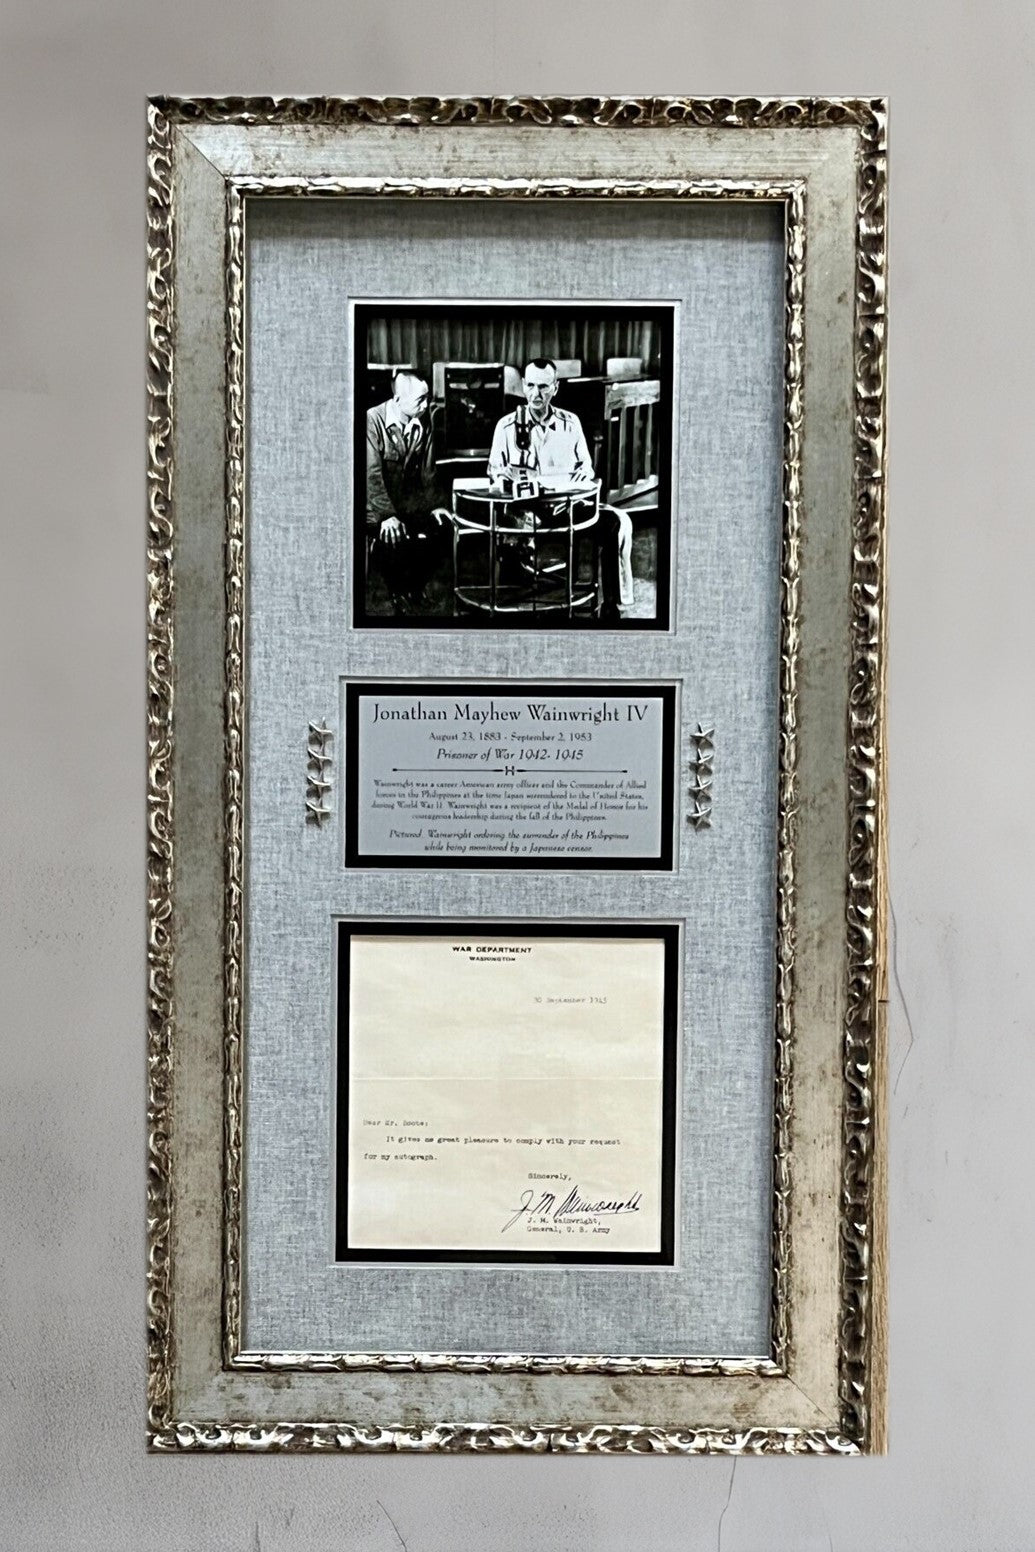 Jonathan Mayhew Wainwright IV
August 23, 1883 - September 2, 1953
Prisoner of War 1942- 1945
Wainwright was a career American army officer and the Commander of Allied
forces in the Philippines at the time Japan surrendered to the United States,
during World War II. Wainwright was a recipient of the Medal of Honor for his
courageous leadership during the fall of the Philippines.
Pictured: Wainwright ordering the surrender of the Philippines
while being monitored by a Japanese censor.
WAR DEPARTMENT
WASHINGTON
30 September 1945
Dear Mr.
It gives me great pleasure to comply with your request
for my autograph.
Sincerely,
J. M. Wainwright
J. M. Wainwright,
General, U. S. Army